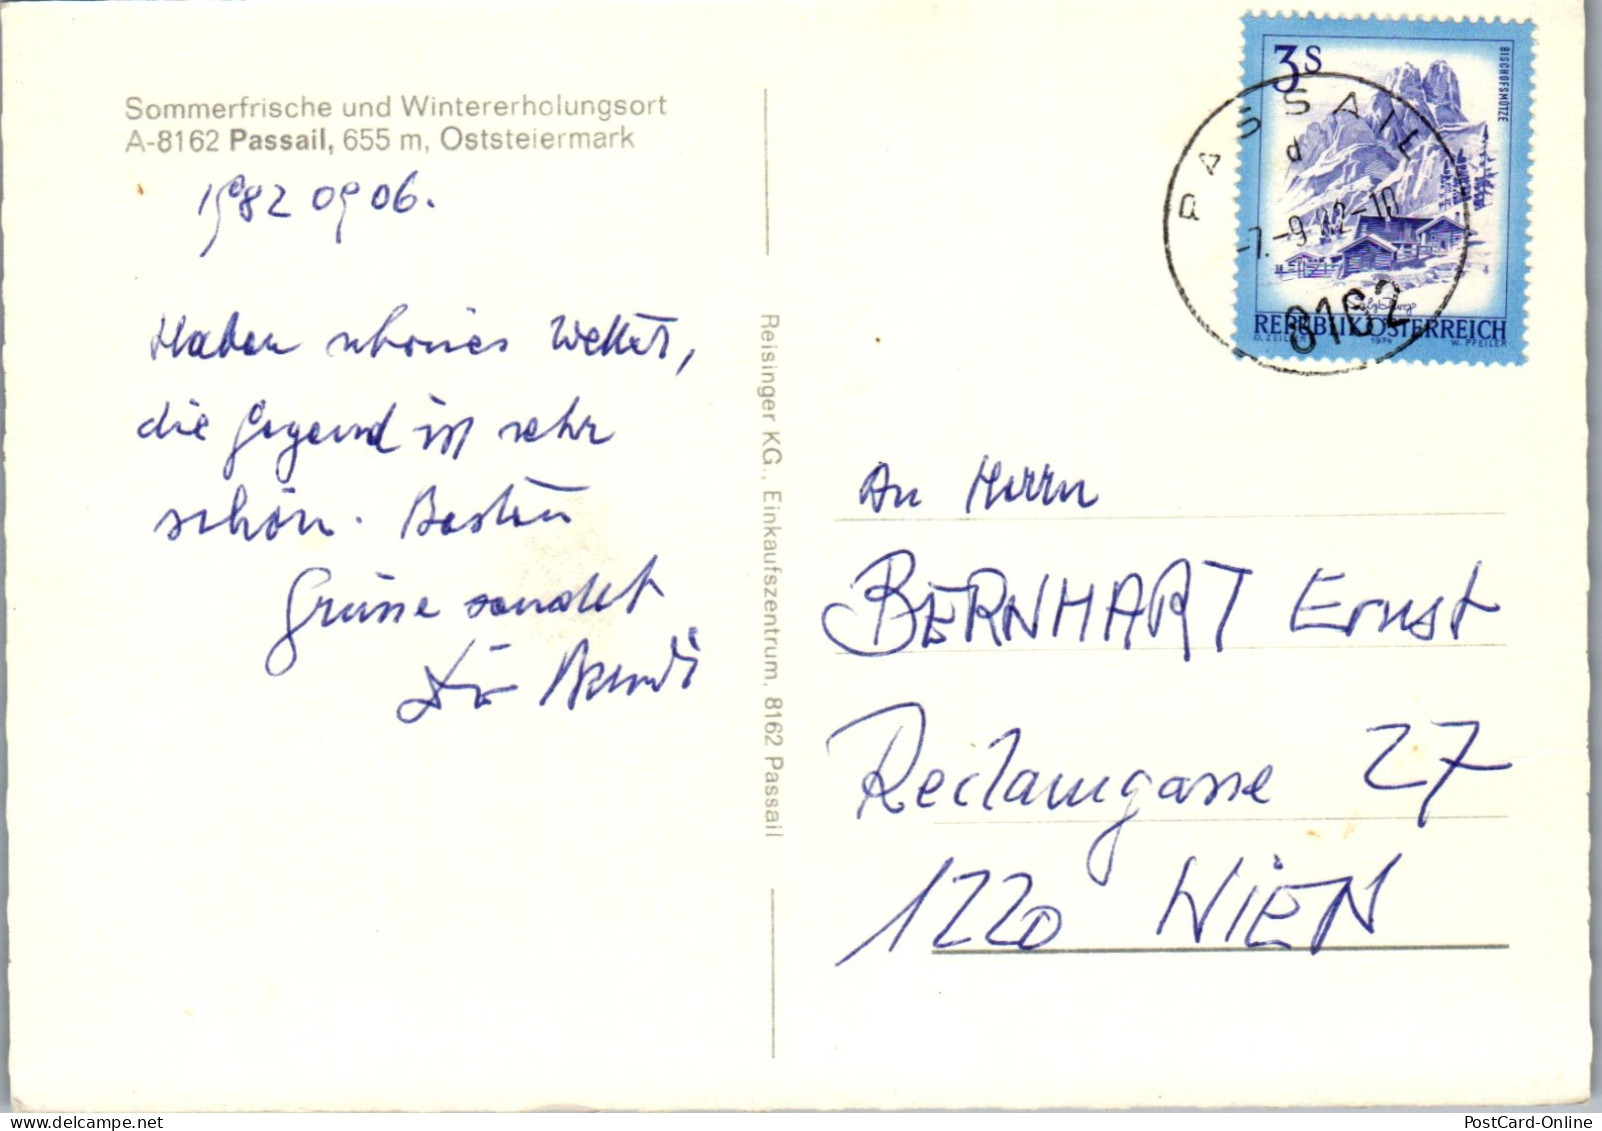 Sommerfrische und Wintererholungsort
A-8162 Passail, 655 m, Oststeiermark
1982 09 06.
Haben schönes Wetter,
die Gegend ist sehr
schön. Besten
Grüsse sendet
Dir
Reisinger KG., Einkaufszentrum, 8162 Passail
3 S
BISCHOFSMÜTZE
PASSAIL
d
-7.-9.82-10
8162
Salzburg
REPUBLIK ÖSTERREICH
O. ZEILLER 1974 W. PFEILER
An Herrn
BERNHART Ernst
Reclamgasse 27
1220 WIEN
PostCard-Online